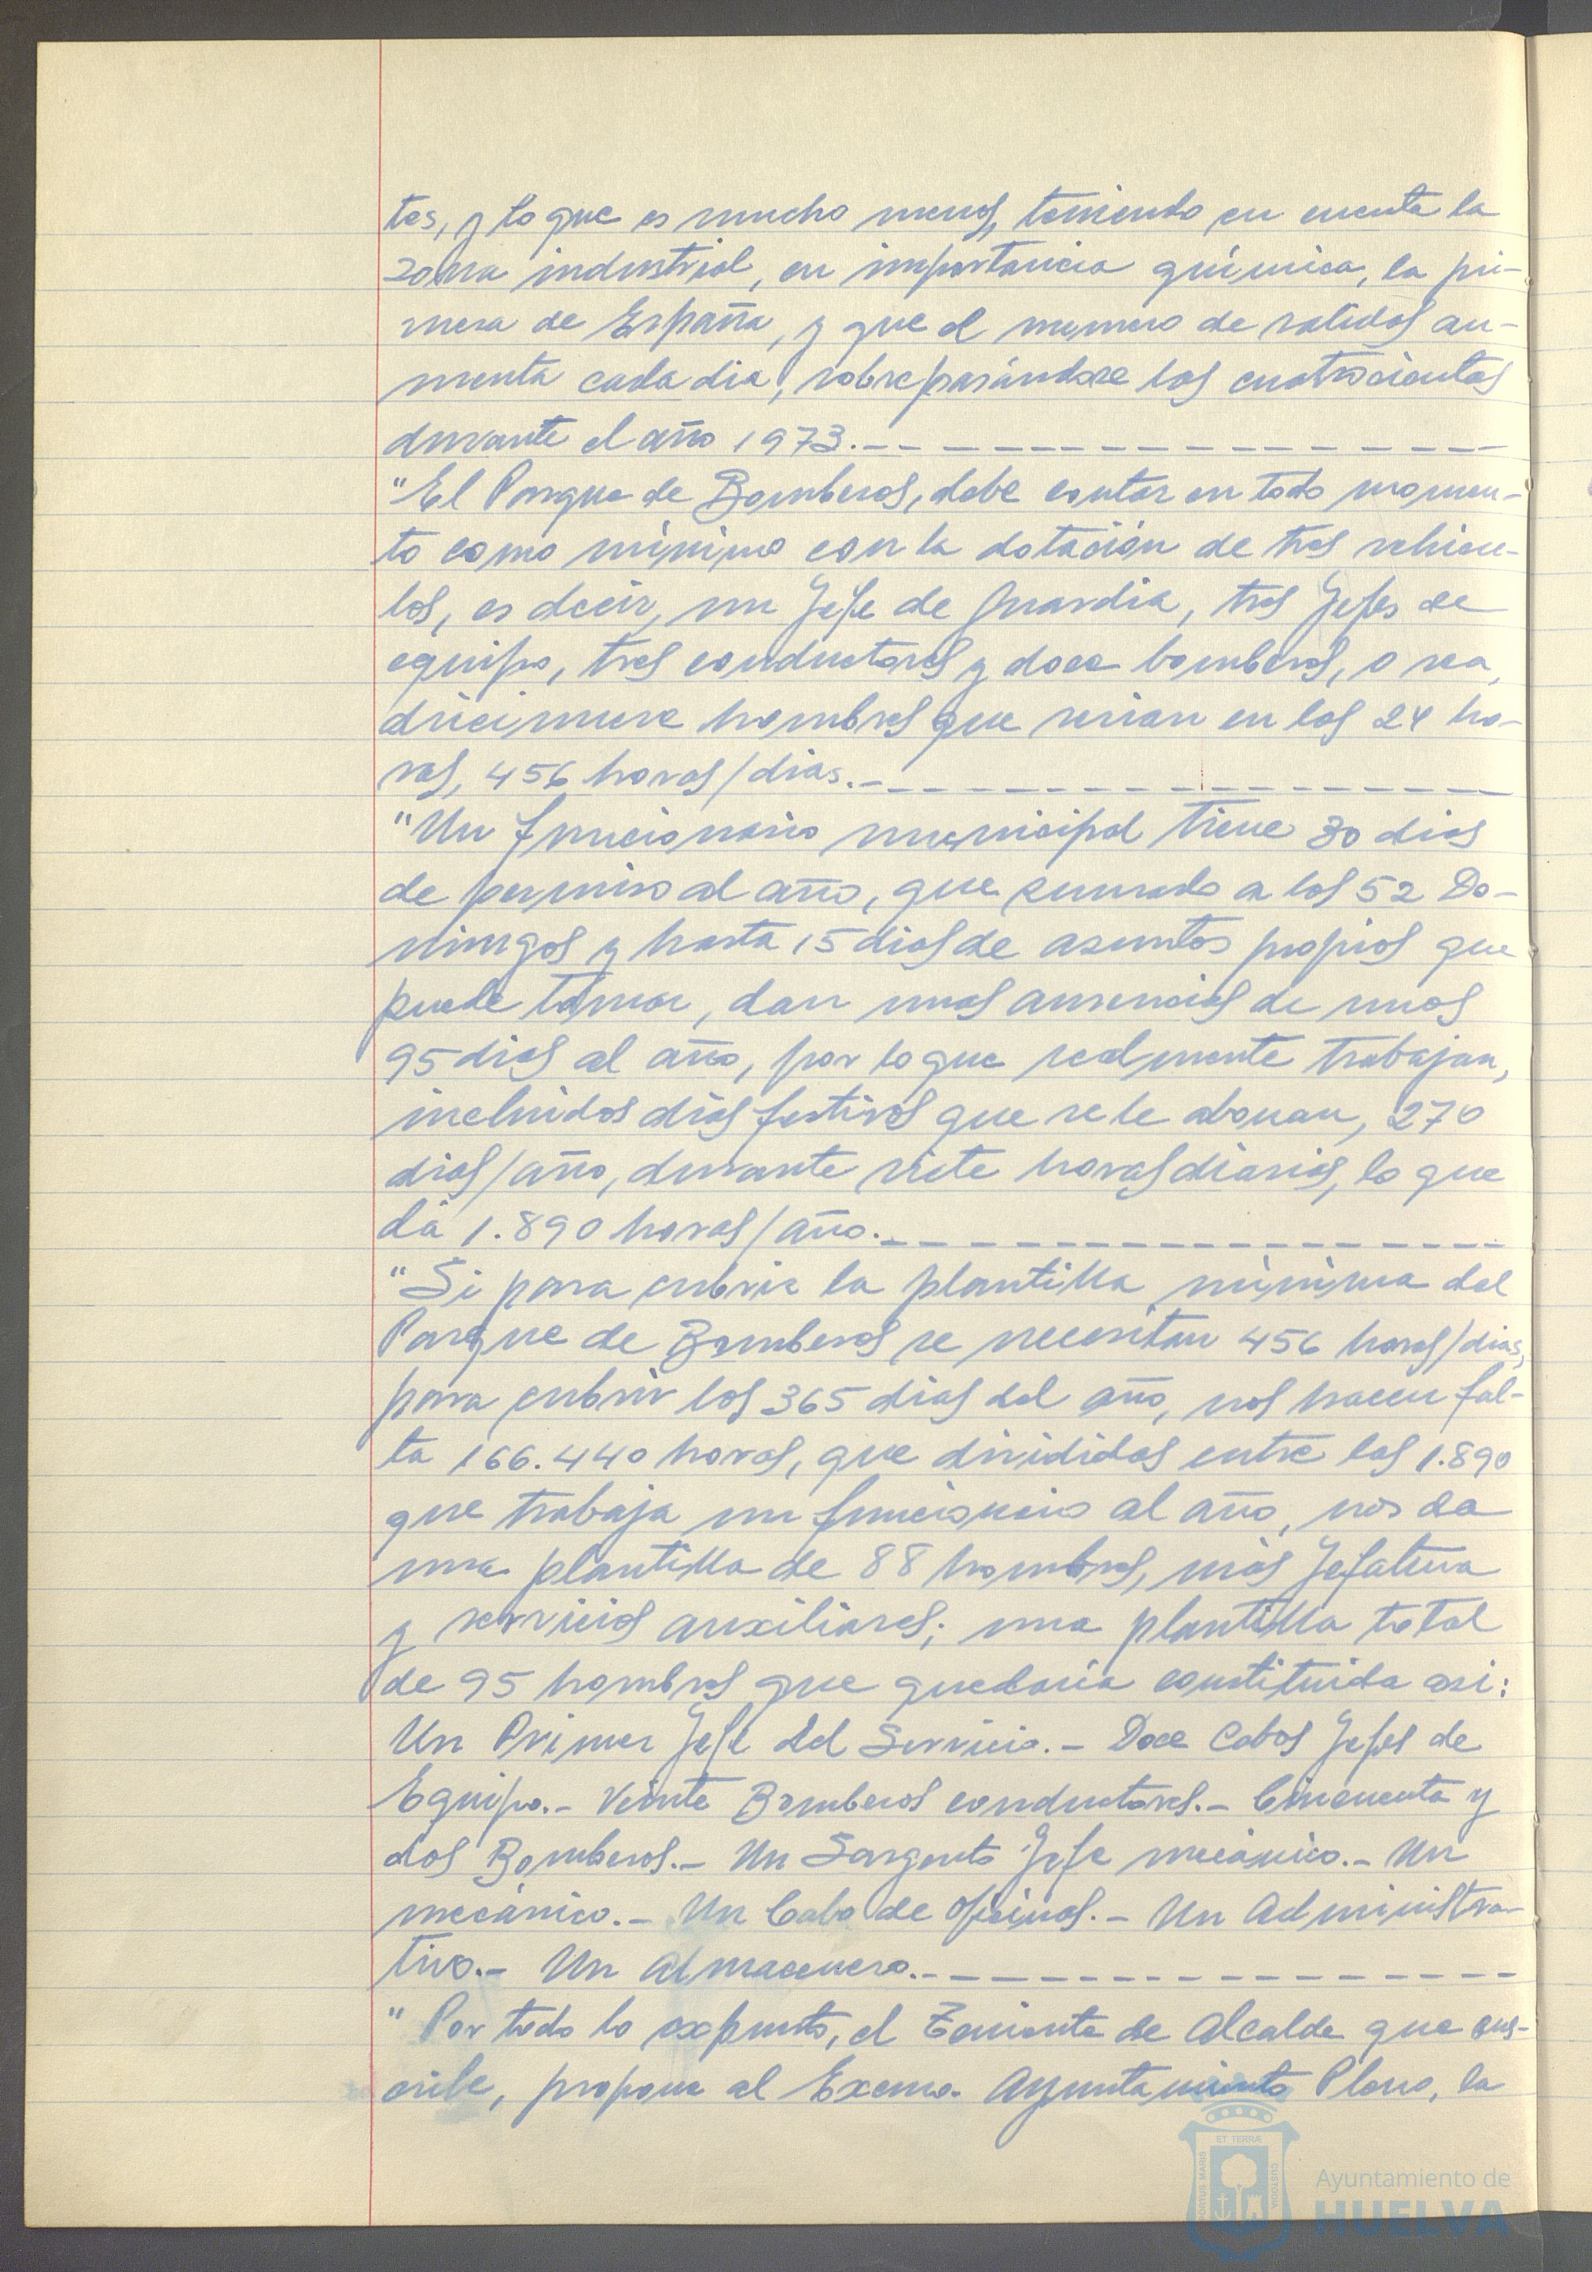 tes, y lo que es mucho menos, teniendo en cuenta la
zona industrial, en importancia química, la pri-
mera de España, y que el numero de salidas au-
menta cada dia, sobrepasándose las cuatrocientas
durante el año 1973.-
"El Parque de Bomberos, debe contar en todo momen-
to como mínimo con la dotación de tres vehicu-
los, es decir, un Jefe de Guardia, tres Jefes de
equipo, tres conductores y doce bomberos, o sea,
diecinueve hombres que serian en las 24 ho-
ras, 456 horas/dias.-
"Un funcionario municipal tiene 30 dias
de permiso al año, que sumado a los 52 Do-
mingos y hasta 15 dias de asuntos propios que
puede tomar, dan unas ausencias de unos
95 dias al año, por lo que realmente trabajan,
incluidos dias festivos que se le abonan, 270
dias/año, durante siete horas diarias, lo que
dá 1.890 horas/año.-
"Si para cubrir la plantilla mínima del
Parque de Bomberos se necesitan 456 horas/dias,
para cubrir los 365 dias del año, nos hacen fal-
ta 166.440 horas, que divididas entre las 1.890
que trabaja un funcionario al año, nos da
una plantilla de 88 hombres, más Jefatura
y servicios auxiliares; una plantilla total
de 95 hombres que quedaria constituida asi:
Un Primer Jefe del Servicio.- Doce Cabos Jefes de
Equipo.- Veinte Bomberos conductores.- Cincuenta y
dos Bomberos.- Un Sargento Jefe mecánico.- Un
mecánico.- Un Cabo de oficinas.- Un Administra-
tivo.- Un Almacenero.-
"Por todo lo expuesto, el Teniente de Alcalde que sus-
cribe, propone al Excmo. Ayuntamiento Pleno, la
ET TERRÆ
PORTUS MARIS
CUSTODIA
Ayuntamiento de
HUELVA